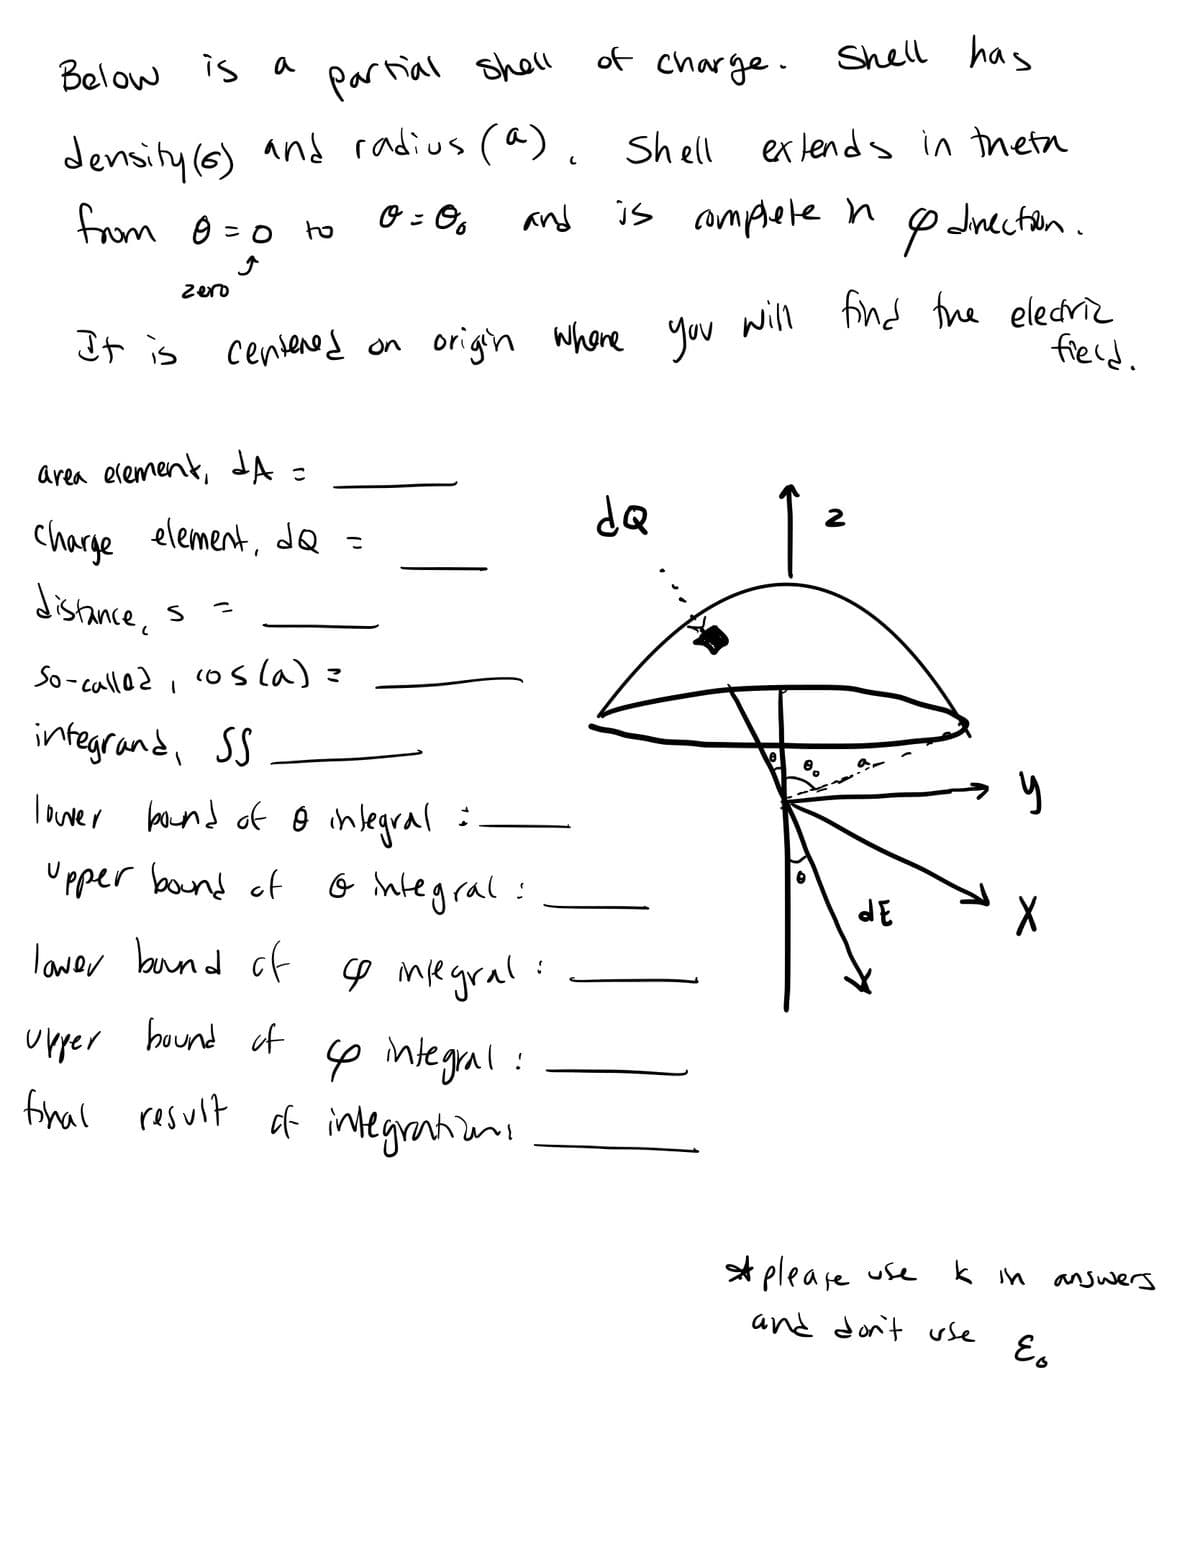 Below is a partial shell of charge. Shell has
density (σ) and radius (a). Shell extends in theta
from θ = 0 to θ = θ₀ and is complete in φ direction.
↑
zero
It is centered on origin where you will find the electric
field.
area element, dA = ____
charge element, dQ = ____
distance, s = ____
so-called, cos(a) = ____
integrand, ∫∫ ____
lower bound of θ integral : ____
upper bound of θ integral : ____
lower bound of φ integral : ____
upper bound of φ integral : ____
final result of integration: ____
dQ
z
θ
θ₀
a
y
θ
dE
x
* please use k in answers
and don't use ε₀